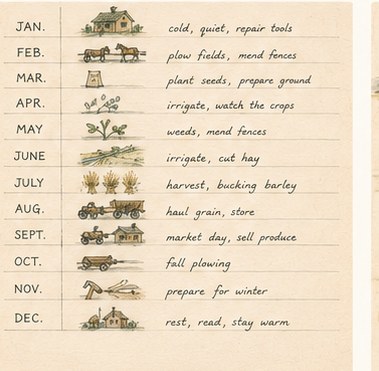 JAN. cold, quiet, repair tools
FEB. plow fields, mend fences
MAR. plant seeds, prepare ground
APR. irrigate, watch the crops
MAY weeds, mend fences
JUNE irrigate, cut hay
JULY harvest, bucking barley
AUG. haul grain, store
SEPT. market day, sell produce
OCT. fall plowing
NOV. prepare for winter
DEC. rest, read, stay warm